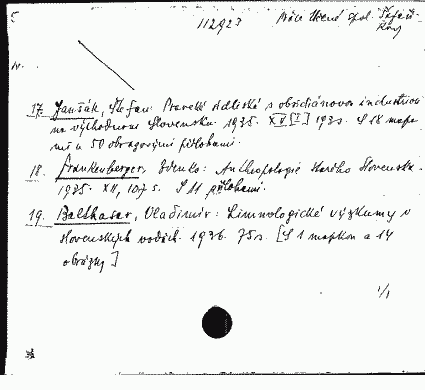 5
112923 Práce Učené spol. Šafaří-
kovy
IV.
17. Janšák, Štefan: Praveké sídliská s obsidiánovou industriou
na východnom Slovensku. 1935. XV [I] 193 s. S 18 mapa
mi a 50 obrazovými přílohami.
18. Frankenberger, Zdenko: Anthropologie starého Slovenska.
1935. XII, 107 s. S 11 přílohami.
19. Balthasar, Vladimír: Limnologické výzkumy v
slovenských vodách. 1936. 75 s. [S 1 mapkou a 14
obrázky]
1/1